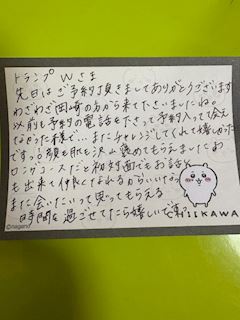 トランプ Wさま
先日はご予約頂きましてありがとうございます
わざわざ岡崎の方から来て下さいましたね。
以前も予約の電話を下さって予約入ってて会え
なかった様で…またチャレンジしてくれて嬉しかった
ですっ!顔も肌も沢山褒めてもらえましたし
ロングコースだと初対面でもお話
も出来て仲良くなれるからいいな
また会いたいって思ってもらえる
時間を過ごせてたら嬉しいです
CHIIKAWA
©nagano